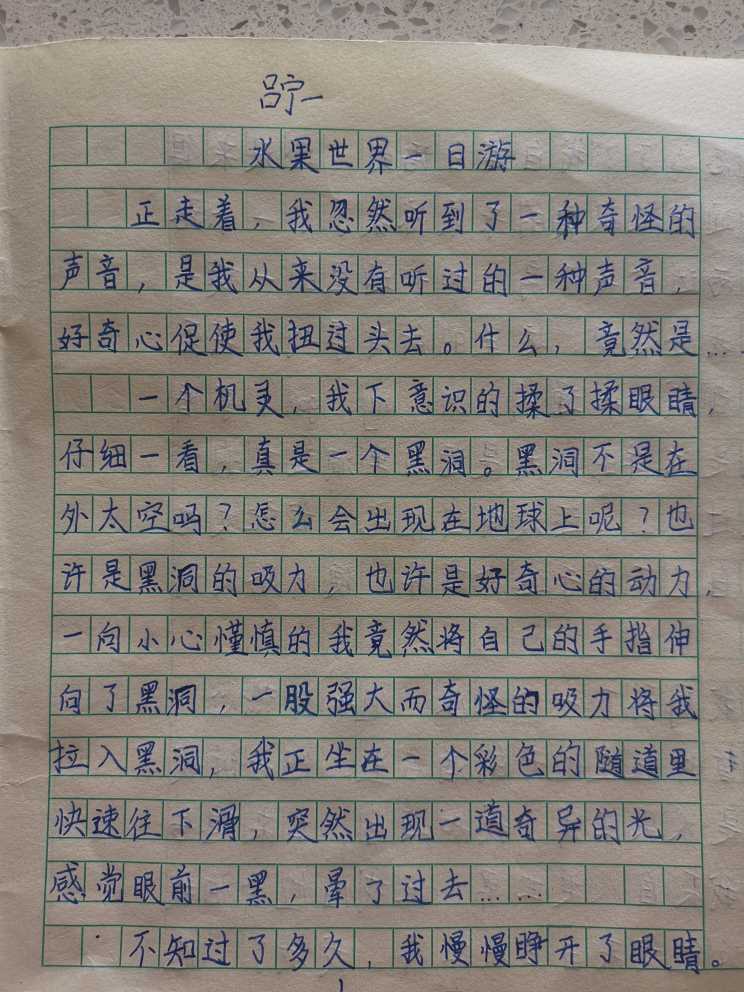 吕宁一
水果世界一日游
正走着，我忽然听到了一种奇怪的
声音，是我从来没有听过的一种声音，
好奇心促使我扭过头去。什么，竟然是……
一个机灵，我下意识的揉了揉眼睛，
仔细一看，真是一个黑洞。黑洞不是在
外太空吗？怎么会出现在地球上呢？也
许是黑洞的吸力，也许是好奇心的动力，
一向小心慬慎的我竟然将自己的手指伸
向了黑洞，一股强大而奇怪的吸力将我
拉入黑洞，我正坐在一个彩色的随道里
快速往下滑，突然出现一道奇异的光，
感觉眼前一黑，晕了过去……
不知过了多久，我慢慢睁开了眼睛。
1